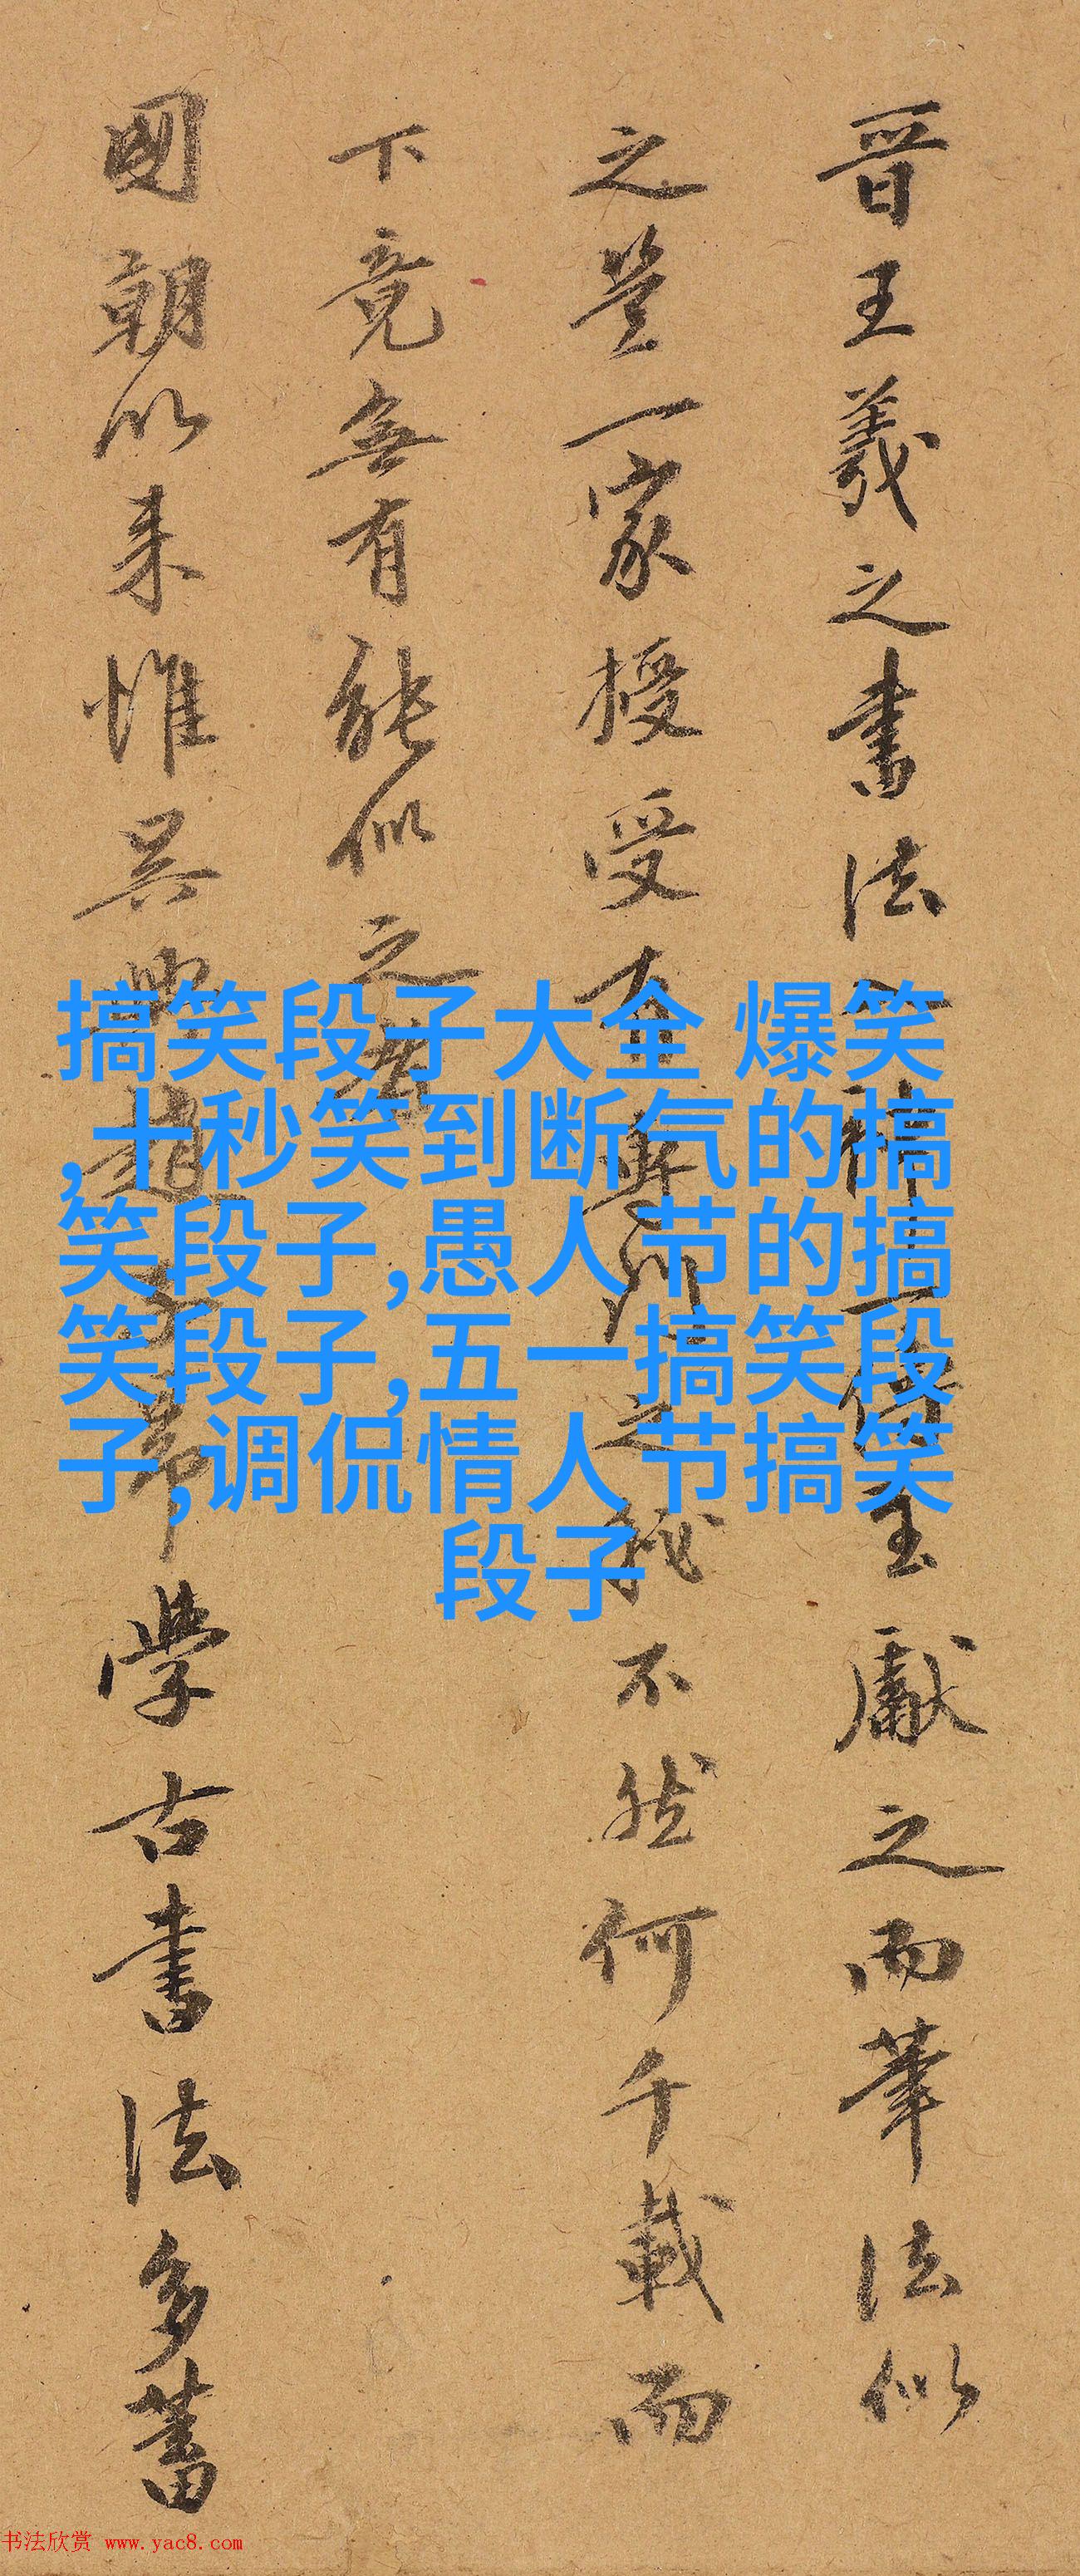 晋王羲之書法神一傳至獻之而筆法似
之豈一家授受有之秘不然何千載而
下竟無有能似之者
國朝以来惟吴興趙學古書法多蓄
搞笑段子大全 爆笑
,十秒笑到断气的搞
笑段子,愚人节的搞
笑段子,五一搞笑段
子,调侃情人节搞笑
段子
书法欣赏 www.yac8.com